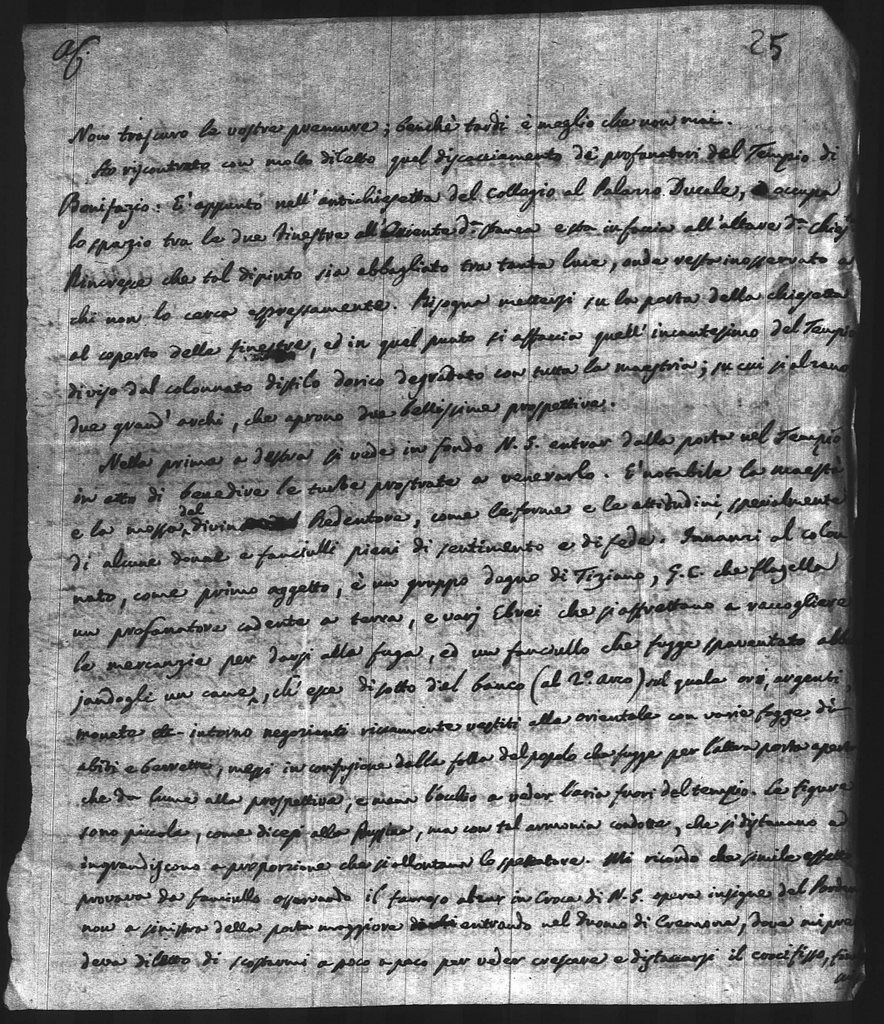 25
Non trascuro le vostre premure; benchè tardi è meglio che non mai.
Ho riscontrato con molto diletto quel discacciamento de' profanatori del Tempio di
Bonifazio: E' appunto nell'antichiesetta del Collegio al Palazzo Ducale, occupa
lo spazio tra le due finestre all'Oriente d.ª stanza e sta in faccia all'altare d.ª
Rincresce che tal dipinto sia abbagliato tra tanta luce, onde resta inosservato a
chi non lo cerca espressamente. Bisogna mettersi su la porta della chiesetta
al coperto della finestre, ed in quel punto si affaccia quell'incantesimo del Tempio
diviso dal colonnato distilo dorico degradato con tutta la maestria; su cui si alzano
due grand'archi, che aprono due bellissime prospettive.
Nella prima a destra si vede in fondo N. S. entrar dalla porta nel Tempio
in atto di benedire le turbe prostrate a venerarlo. E' notabile la maestà
e la mossa del divin Redentore, come le forme e le attitudini, specialmente
di alcune donne e fanciulli pieni di sentimento e di fede. Innanzi al colon
nato, come primo oggetto, è un gruppo degno di Tiziano, G. C. che flagella
un profanatore cadente a terra, e varj Ebrei che si affrettano a raccogliere
le mercanzie per darsi alla fuga, ed un fanciullo che fugge spaventato abb
jandogli un cane, ch'esce di sotto del banco (al 2.º arco) sul quale ori, argenti,
monete etc. intorno negozianti riccamente vestiti alla orientale con varie fogge di
abiti e berrette, messi in confusione dalla folla del popolo che fugge per l'altra porta aperta
che dà lume alla prospettiva, e mena l'occhio a veder l'aria fuori del tempio. Le figure
sono piccole, come dicesi alla Pussina, ma con tal armonia condotte, che si distaccano ed
ingrandiscono a proporzione che si allontana lo spettatore. Mi ricordo che simile effetto
provava da fanciullo osservando il famoso alzar in Croce di N. S. opera insigne del Porde
none a sinistra della porta maggiore entrando nel Duomo di Cremona, dove mi pren
deva diletto di scostarmi a poco a poco per veder crescere e distaccarsi il crocifisso,